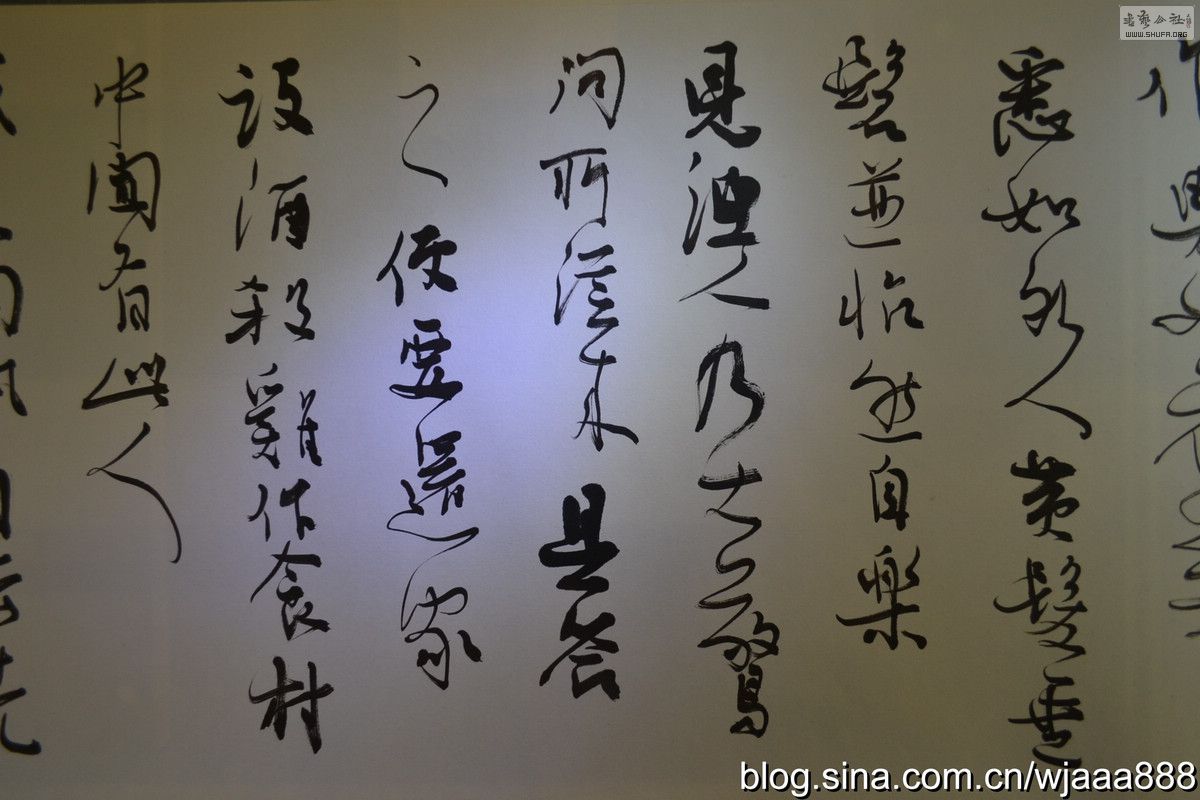 作男女衣著
悉如外人黃髮垂
髫並怡然自樂
見漁人乃大驚
問所從來具答
之便要還家
設酒殺雞作食村
中聞有此人
問訊自云先
書藝公社
WWW.SHUFA.ORG
blog.sina.com.cn/wjaaa888